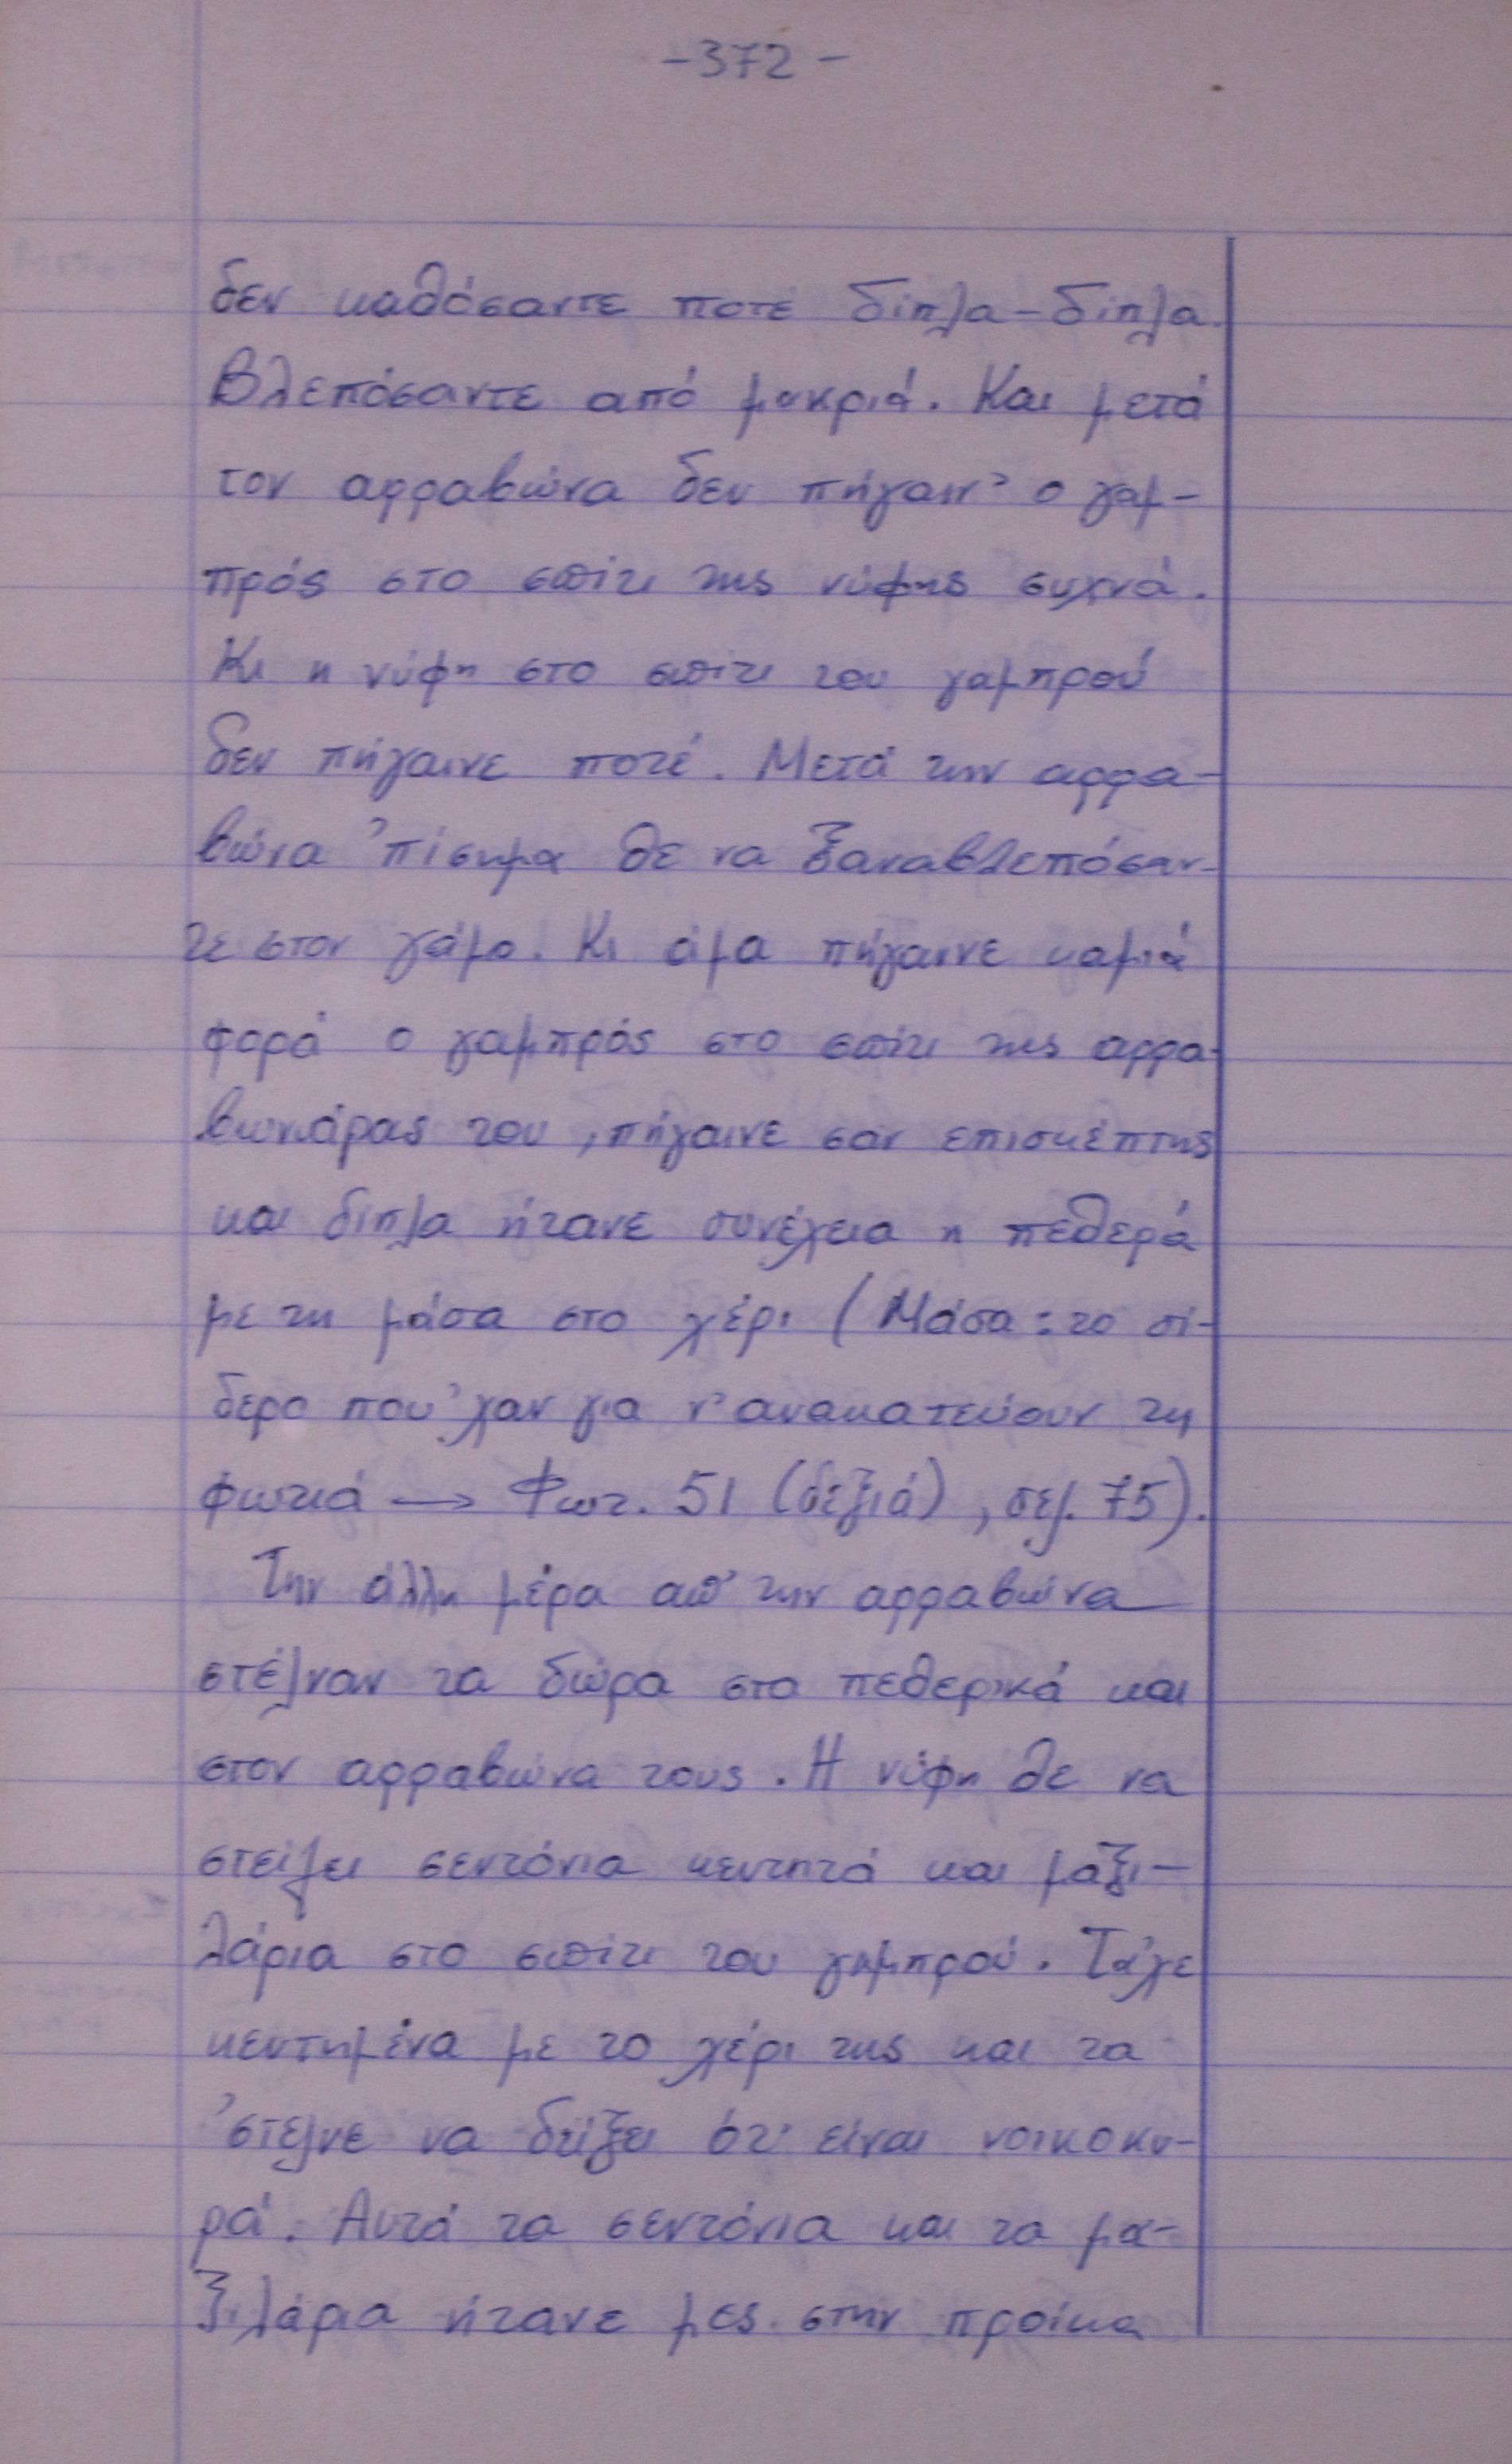 -372-
δεν καθόσαντε ποτέ δίπλα-δίπλα.
Βλεπόσαντε από μακριά. Και μετά
τον αρραβώνα δεν πήγαιν' ο γαμ-
πρός στο σπίτι της νύφης συχνά.
Κι η νύφη στο σπίτι του γαμπρού
δεν πήγαινε ποτέ. Μετά την αρρα-
βώνα 'πίσημα θε να ξαναβλεπόσαν-
τε στον γάμο. Κι άμα πήγαινε καμιά
φορά ο γαμπρός στο σπίτι της αρρα-
βωνιάρας του, πήγαινε σαν επισκέπτης
και δίπλα ήτανε συνέχεια η πεθερά
με τη μάσα στο χέρι (Μάσα: το σί-
δερο που 'χαν για ν' ανακατεύουν τη
φωτιά → Φωτ. 51 (δεξιά), σελ. 75).
Την άλλη μέρα απ' την αρραβώνα
στέλναν τα δώρα στα πεθερικά και
στον αρραβώνα τους. Η νύφη θε να
στείλει σεντόνια κεντητά και μαξι-
λάρια στο σπίτι του γαμπρού. Τα 'χε
κεντημένα με το χέρι της και τα
'στελνε να δείξει ότ' είναι νοικοκυ-
ρά. Αυτά τα σεντόνια και τα μα-
ξιλάρια ήτανε μες στην προίκα